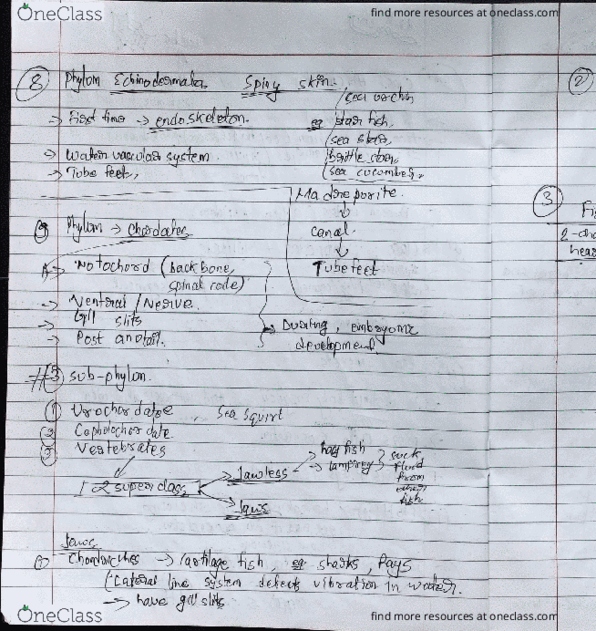 OneClass
find more resources at oneclass.com
8 Phylum Echinodermata, Spiny skin.
-> First time -> endoskeleton.
eg sea urchin
starfish,
sea star,
brittle star,
sea cucumber,
-> Water vascular system
-> Tube feet,
Madreporite
↓
canal
↓
Tubefeet
9 Phylum -> Chordates
-> Notochord (backbone, spinal code)
-> Ventoral / Nerve.
-> Gill slits
-> Post anotail.
-> During, embryonic development.
# 3 sub-phylum.
1 Urochordatoe, Sea Squirt
2 Cepholochordate.
3 Vertebrates
2 superclass
-> Jawless -> hagfish
-> lamprey
suck fluid from other fish.
-> Jaws
Jaws
1 Chondricthes -> cartilage fish, eg sharks, Rays
(Lateral line system detects vibration in water.
-> have gill slits
2
3
Fi
2-cha
hear
OneClass
find more resources at oneclass.com